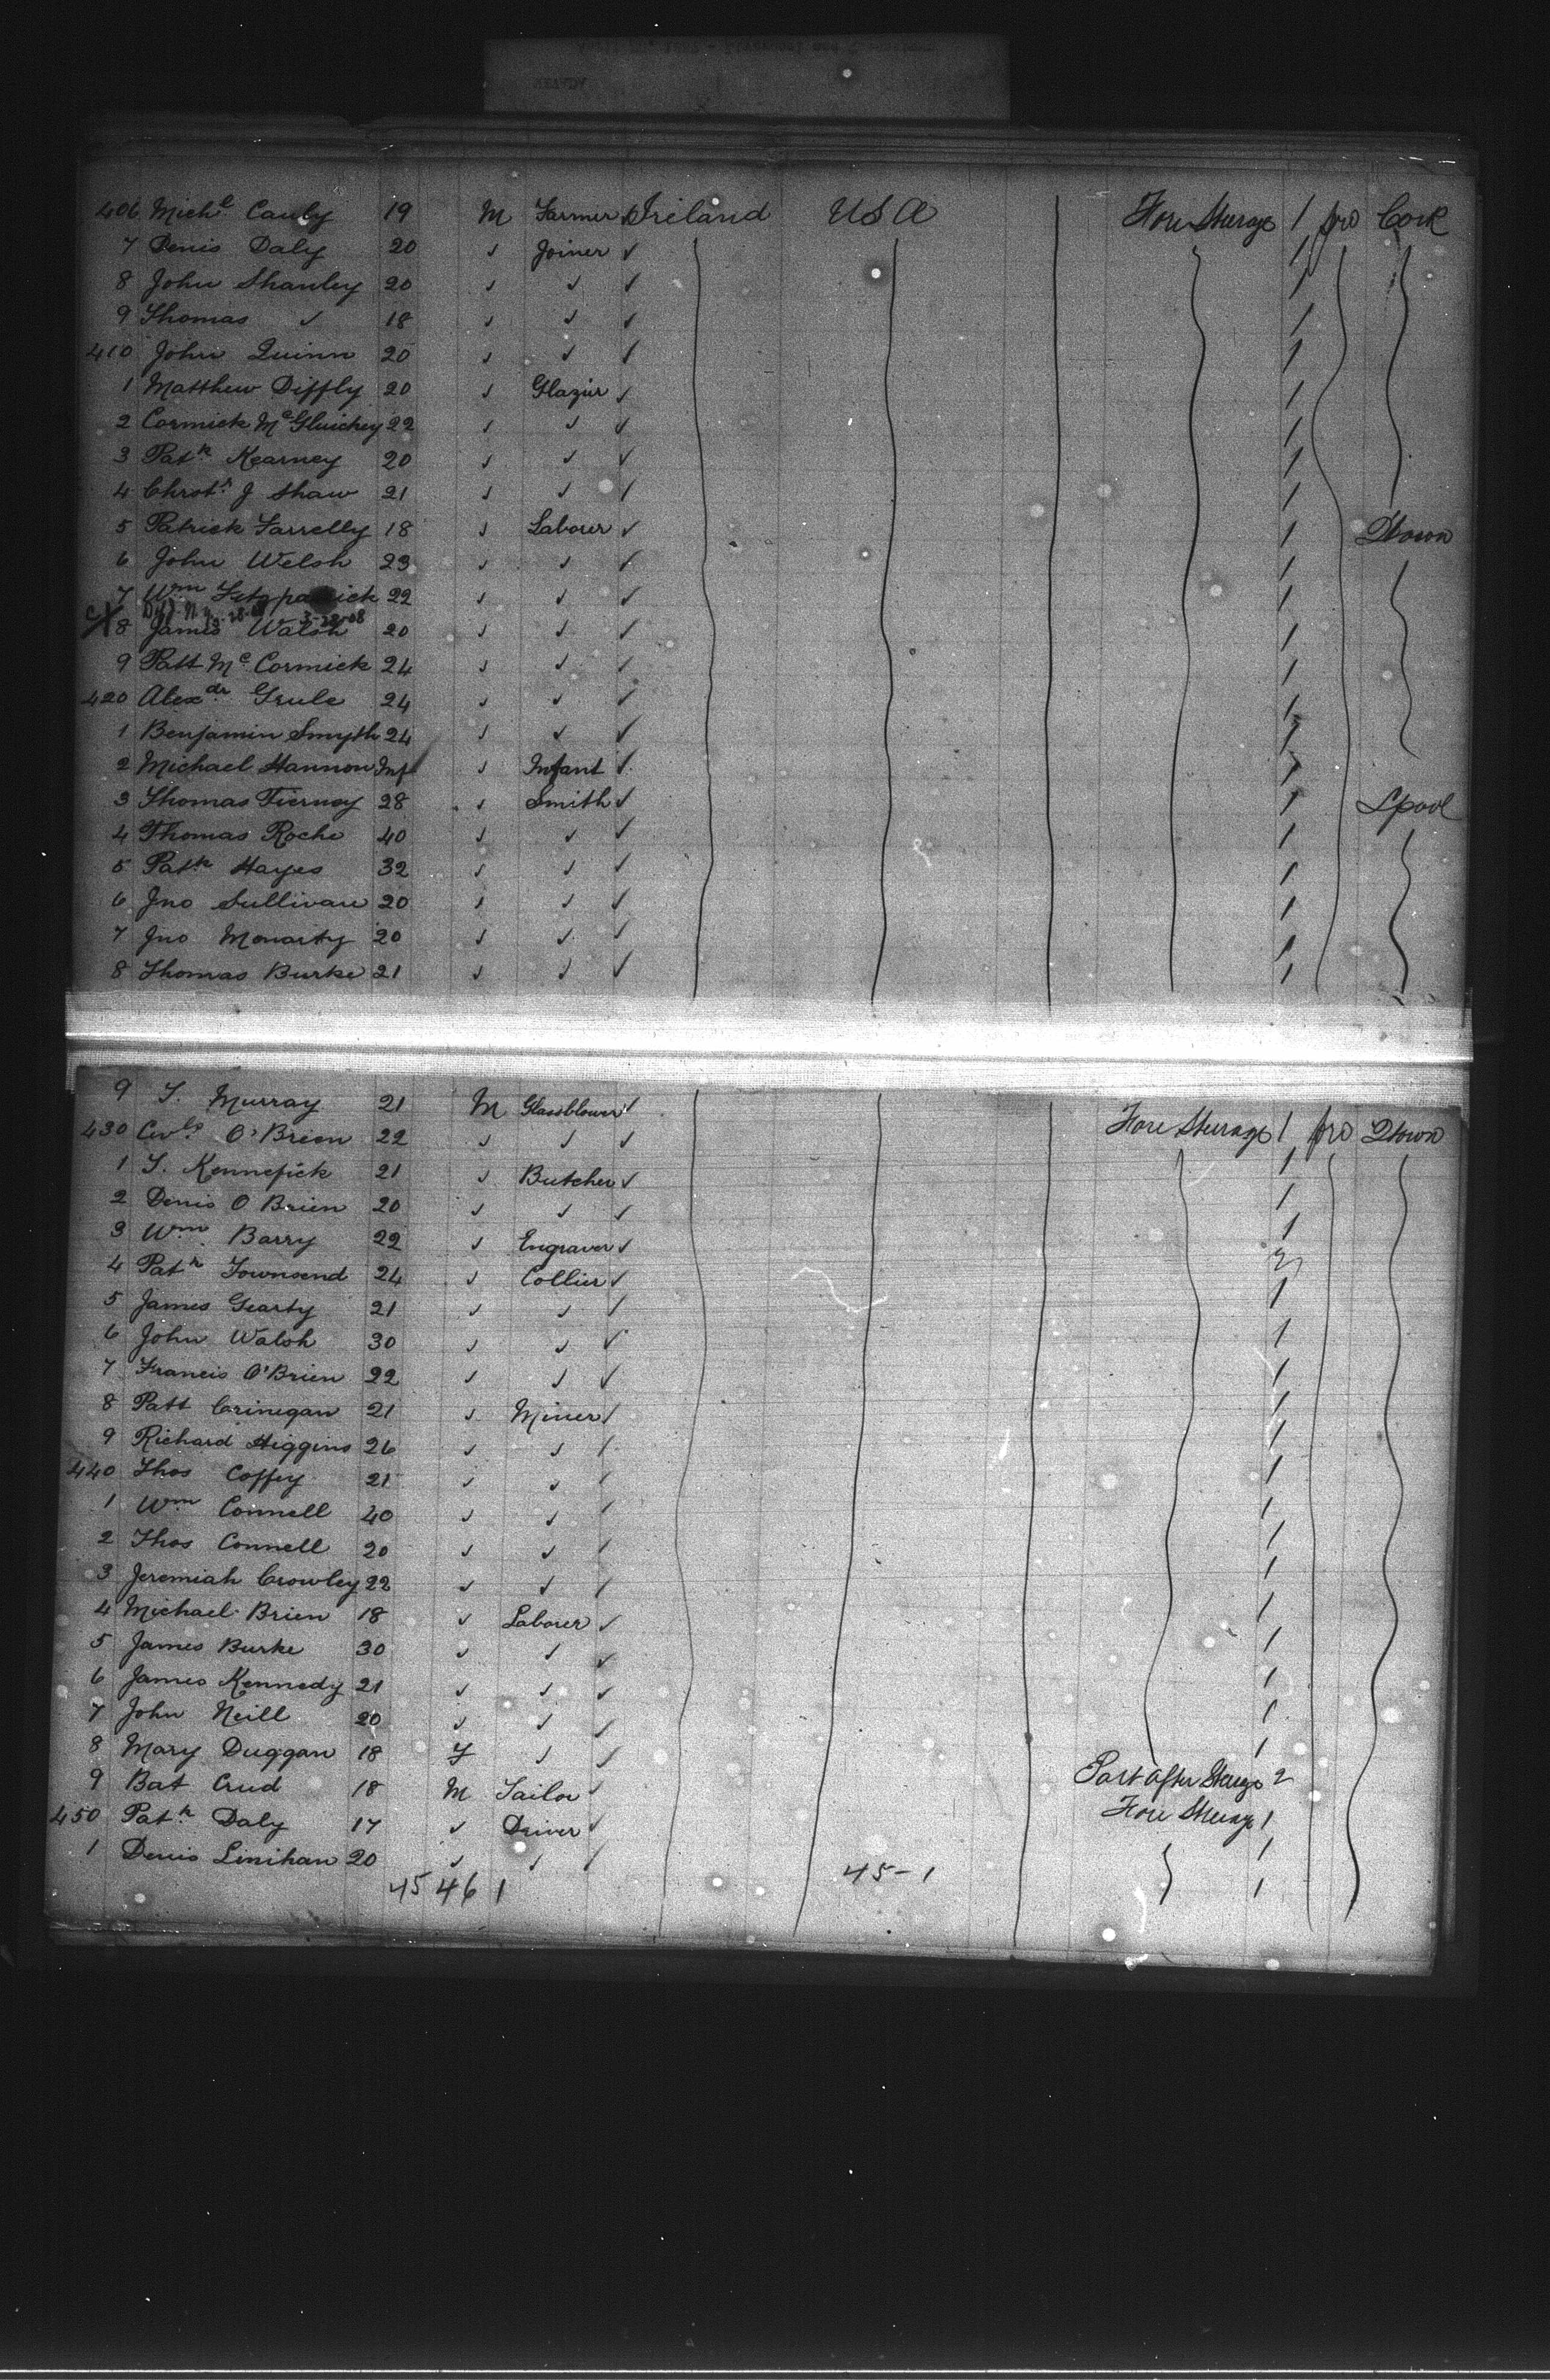 406 Mich^l Cauly 19 M Farmer ✓ Ireland USA Fore Steerage 1 pro Cork
7 Denis Daly 20 ✓ Joiner ✓ 1
8 John Shanley 20 ✓ ✓ ✓ 1
9 Thomas ✓ 18 ✓ ✓ ✓ 1
410 John Quinn 20 ✓ ✓ ✓ 1
1 Matthew Diffly 20 ✓ Glazier ✓ 1
2 Cormick 22 ✓ ✓ ✓ 1
3 Pat^k Kearney 20 ✓ ✓ ✓ 1
4 Christ^r J Shaw 21 ✓ ✓ ✓ 1
5 Patrick Farrelly 18 ✓ Laborer ✓ 1 Qtown
6 John Welsh 23 ✓ ✓ ✓ 1
7 W^m Fitzpatrick 22 ✓ ✓ ✓ 1
8 James Walsh 20 ✓ ✓ ✓ 1
9 Patt M^c Cormick 24 ✓ ✓ ✓ 1
420 Alex^dr Grule 24 ✓ ✓ ✓ 1
1 Benjamin Smyth 24 ✓ ✓ ✓ 1
2 Michael Hannon Inf ✓ Infant ✓
3 Thomas Tierney 28 ✓ Smith ✓ 1 Lpool
4 Thomas Roche 40 ✓ ✓ ✓ 1
5 Pat^k Hayes 32 ✓ ✓ ✓ 1
6 Jno Sullivan 20 ✓ ✓ ✓ 1
7 Jno Moriarty 20 ✓ ✓ ✓ 1
8 Thomas Burke 21 ✓ ✓ ✓ 1
9 T. Murray 21 M Glassblower ✓ Fore Steerage 1 pro Qtown
430 O'Brien 22 ✓ ✓ ✓ 1
1 T. Kennefick 21 ✓ Butcher ✓ 1
2 Denis O Brien 20 ✓ ✓ ✓ 1
3 W^m Barry 22 ✓ Engraver ✓
4 Pat^k Townsend 24 ✓ Collier ✓ 1
5 James Gearty 21 ✓ ✓ ✓ 1
6 John Walsh 30 ✓ ✓ ✓ 1
7 Francis O'Brien 22 ✓ ✓ ✓ 1
8 Patt Crinegan 21 ✓ Miner ✓ 1
9 Richard Higgins 26 ✓ ✓ ✓ 1
440 Thos Coffey 21 ✓ ✓ ✓ 1
1 W^m Connell 40 ✓ ✓ ✓ 1
2 Thos Connell 20 ✓ ✓ ✓ 1
3 Jeremiah Crowley 22 ✓ ✓ ✓ 1
4 Michael Brien 18 ✓ Laborer ✓ 1
5 James Burke 30 ✓ ✓ ✓ 1
6 James Kennedy 21 ✓ ✓ ✓ 1
7 John Neill 20 ✓ ✓ ✓ 1
8 Mary Duggan 18 F ✓ ✓ Part After Steerage 2
9 Bat Crud 18 M Tailor ✓ Fore Steerage 1
450 Pat^k Daly 17 ✓ Driver ✓ 1
1 Denis Linihan 20 ✓ ✓ ✓ 1
45 46 1 45-1